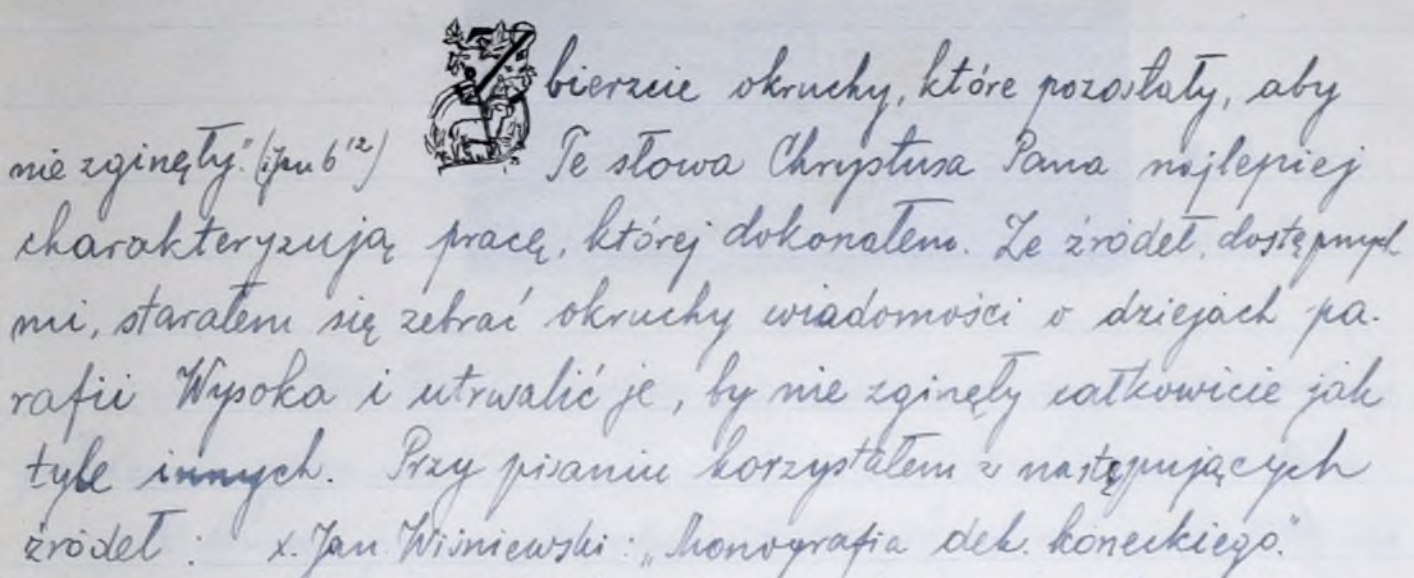 Zbierzcie okruchy, które pozostały, aby
nie zginęły." (Jan 6¹²) Te słowa Chrystusa Pana najlepiej
charakteryzują pracę, której dokonałem. Ze źródeł, dostępnych
mi, starałem się zebrać okruchy wiadomości o dziejach pa-
rafii Wysoka i utrwalić je, by nie zginęły całkowicie jak
tyle innych. Przy pisaniu korzystałem z następujących
źródeł: x. Jan Wiśniewski: „Monografia dek. koneckiego."